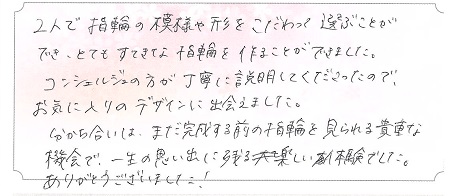 2人で指輪の模様や形をこだわって選ぶことが
でき、とてもすてきな指輪を作ることができました。
コンシェルジュの方が丁寧に説明してくださったので、
お気に入りのデザインに出会えました。
分かち合いは、まだ完成する前の指輪を見られる貴重な
機会で、一生の思い出に残る楽しい体験でした。
ありがとうございました!